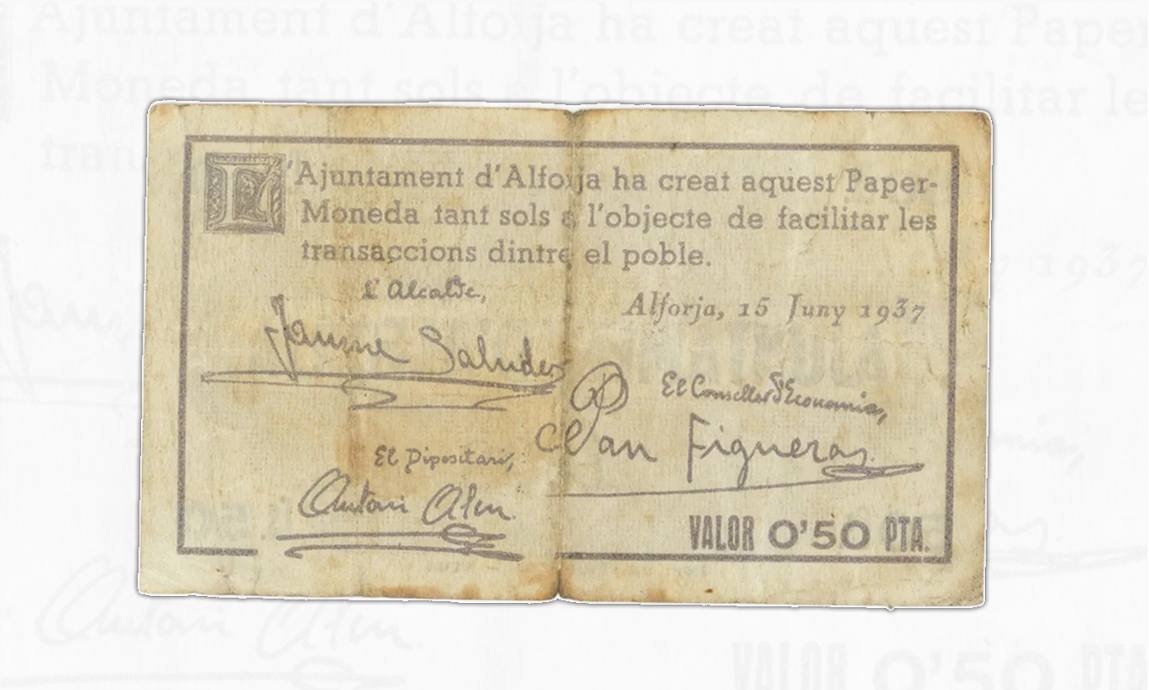 L'Ajuntament d'Alforja ha creat aquest Paper-
Moneda tant sols a l'objecte de facilitar les
transaccions dintre el poble.
L'Alcalde,
Alforja, 15 Juny 1937
Jaume Saludes
El Conseller d'Economia,
Joan Figueras
El Dipositari,
Antoni
VALOR 0'50 PTA.